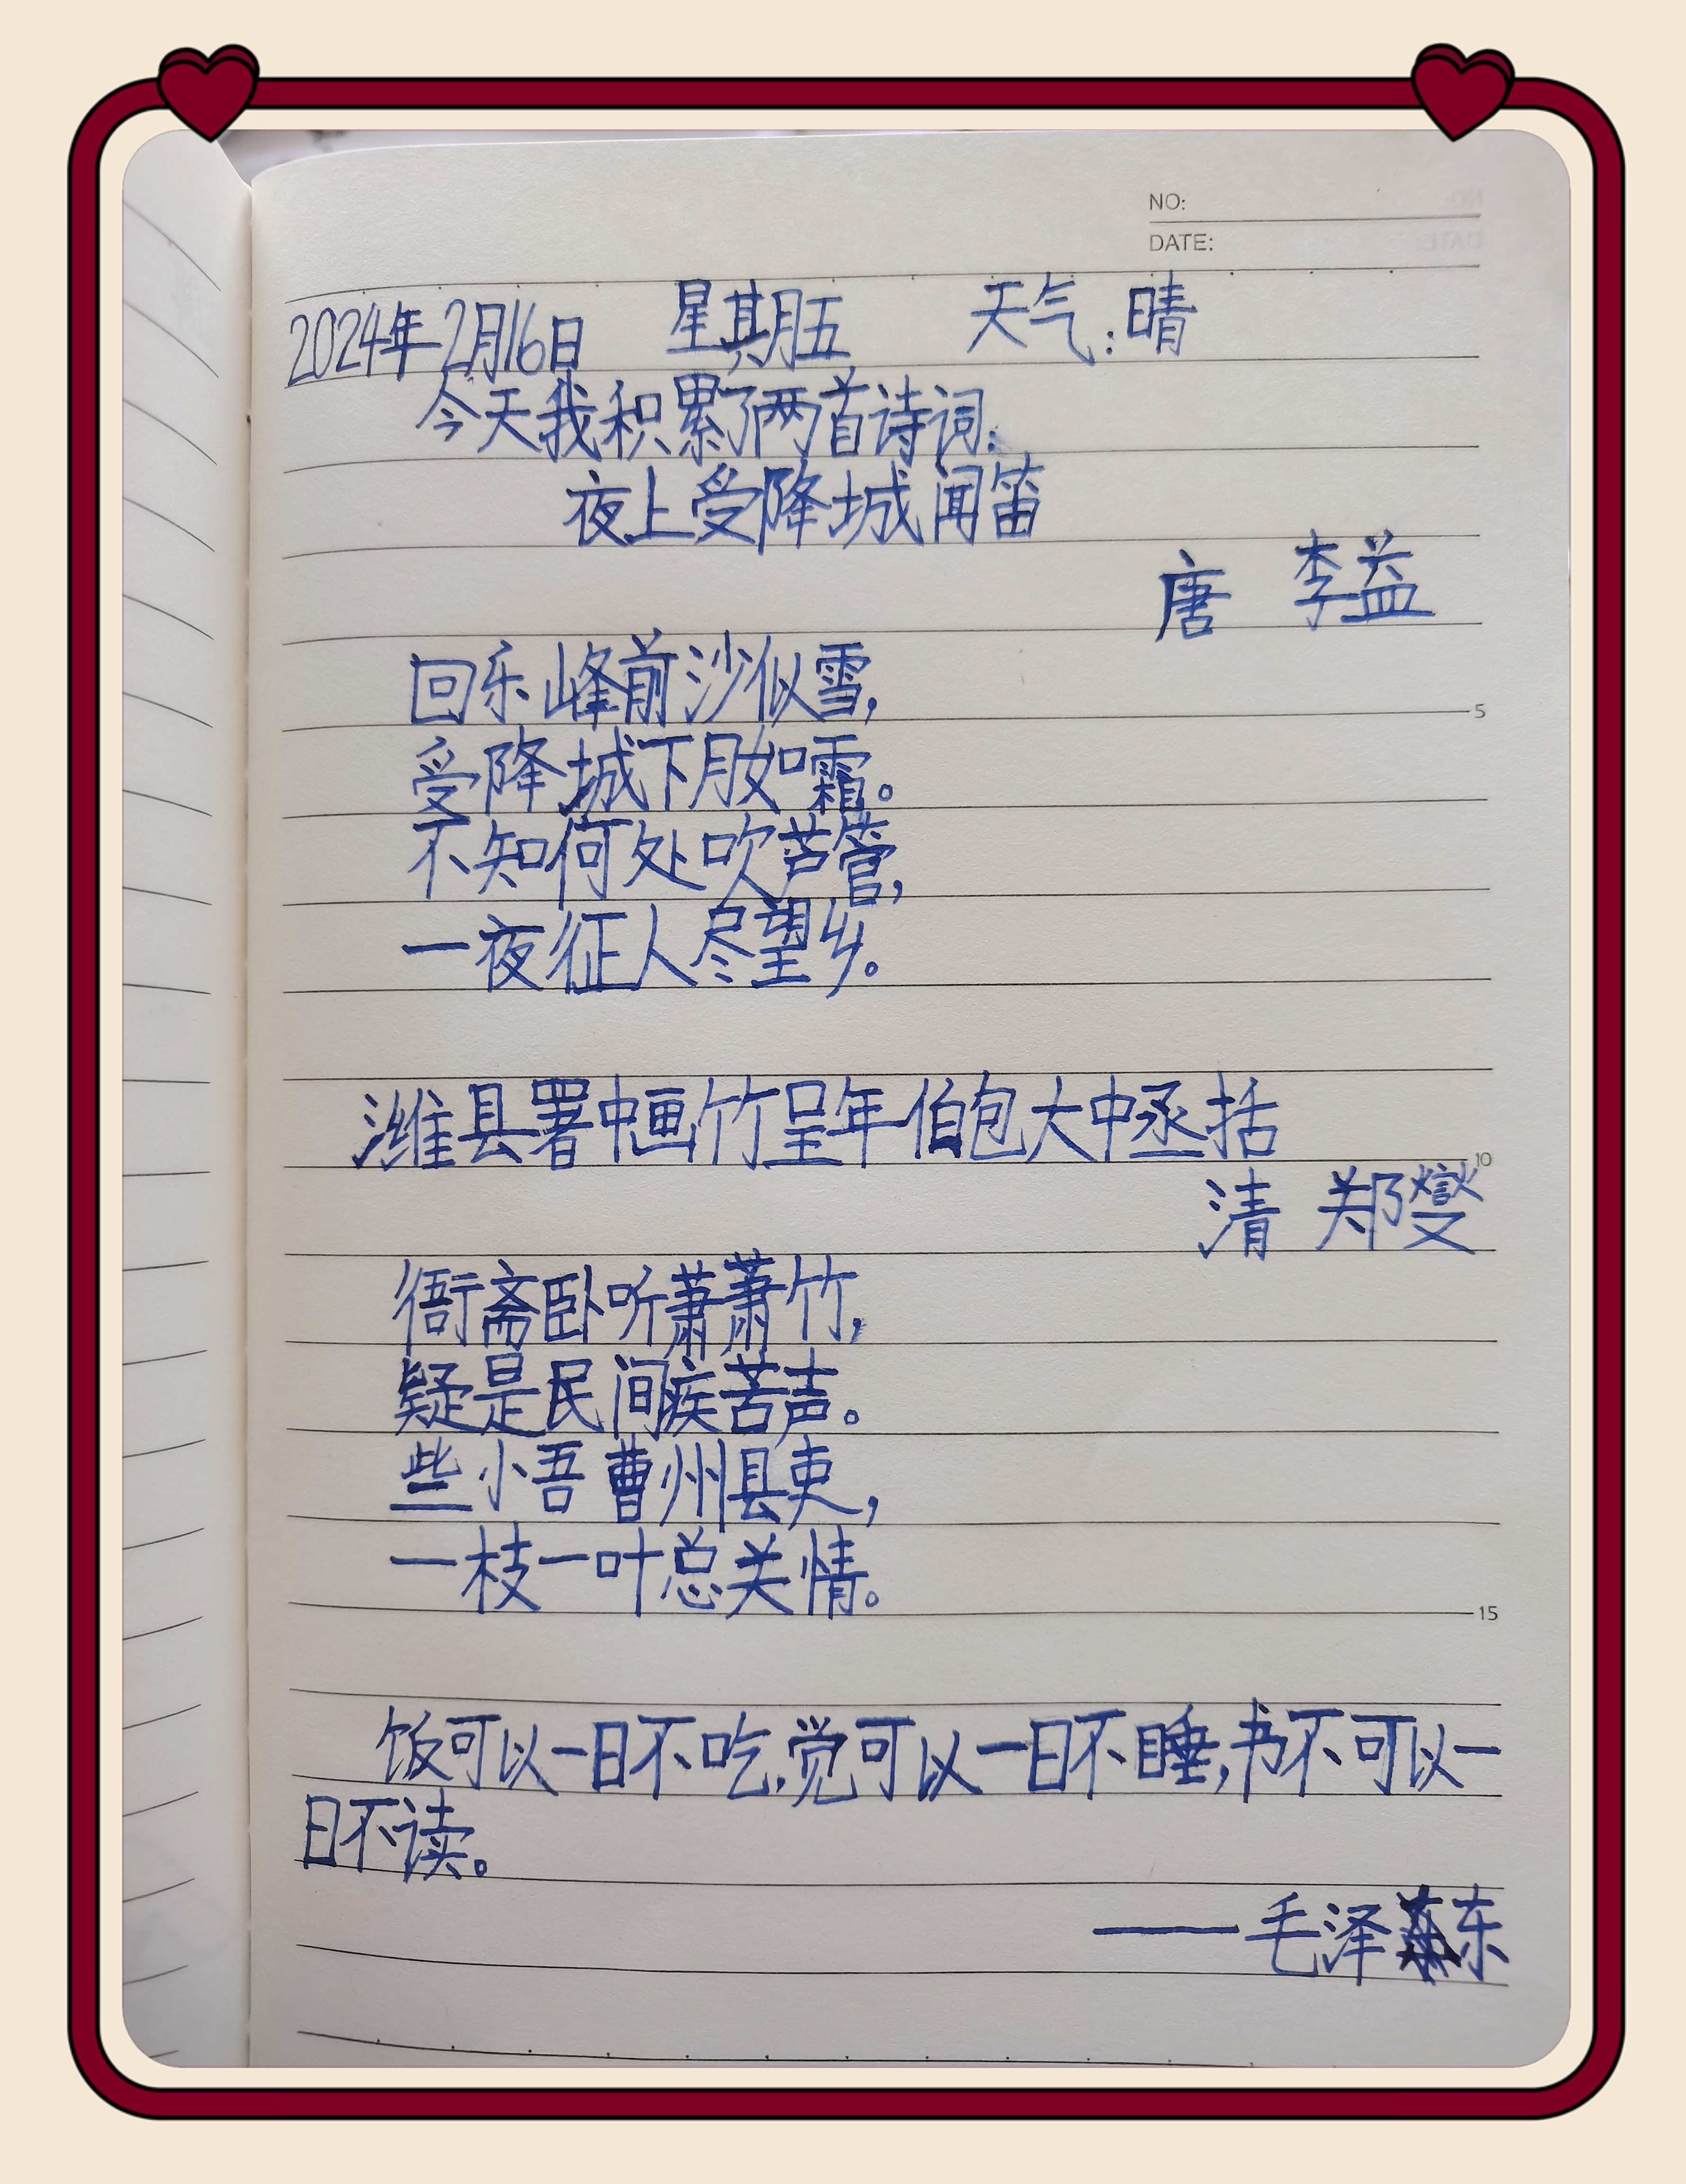 NO:
DATE:
2024年2月16日 星期五 天气:晴
今天我积累了两首诗词:
夜上受降城闻笛
唐 李益
回乐峰前沙似雪,
5
受降城下月如霜。
不知何处吹芦管,
一夜征人尽望乡。
潍县署中画竹呈年伯包大中丞括
10
清 郑燮
衙斋卧听萧萧竹,
疑是民间疾苦声。
些小吾曹州县吏,
一枝一叶总关情。
15
饭可以一日不吃,觉可以一日不睡,书不可以一
日不读。
——毛泽东